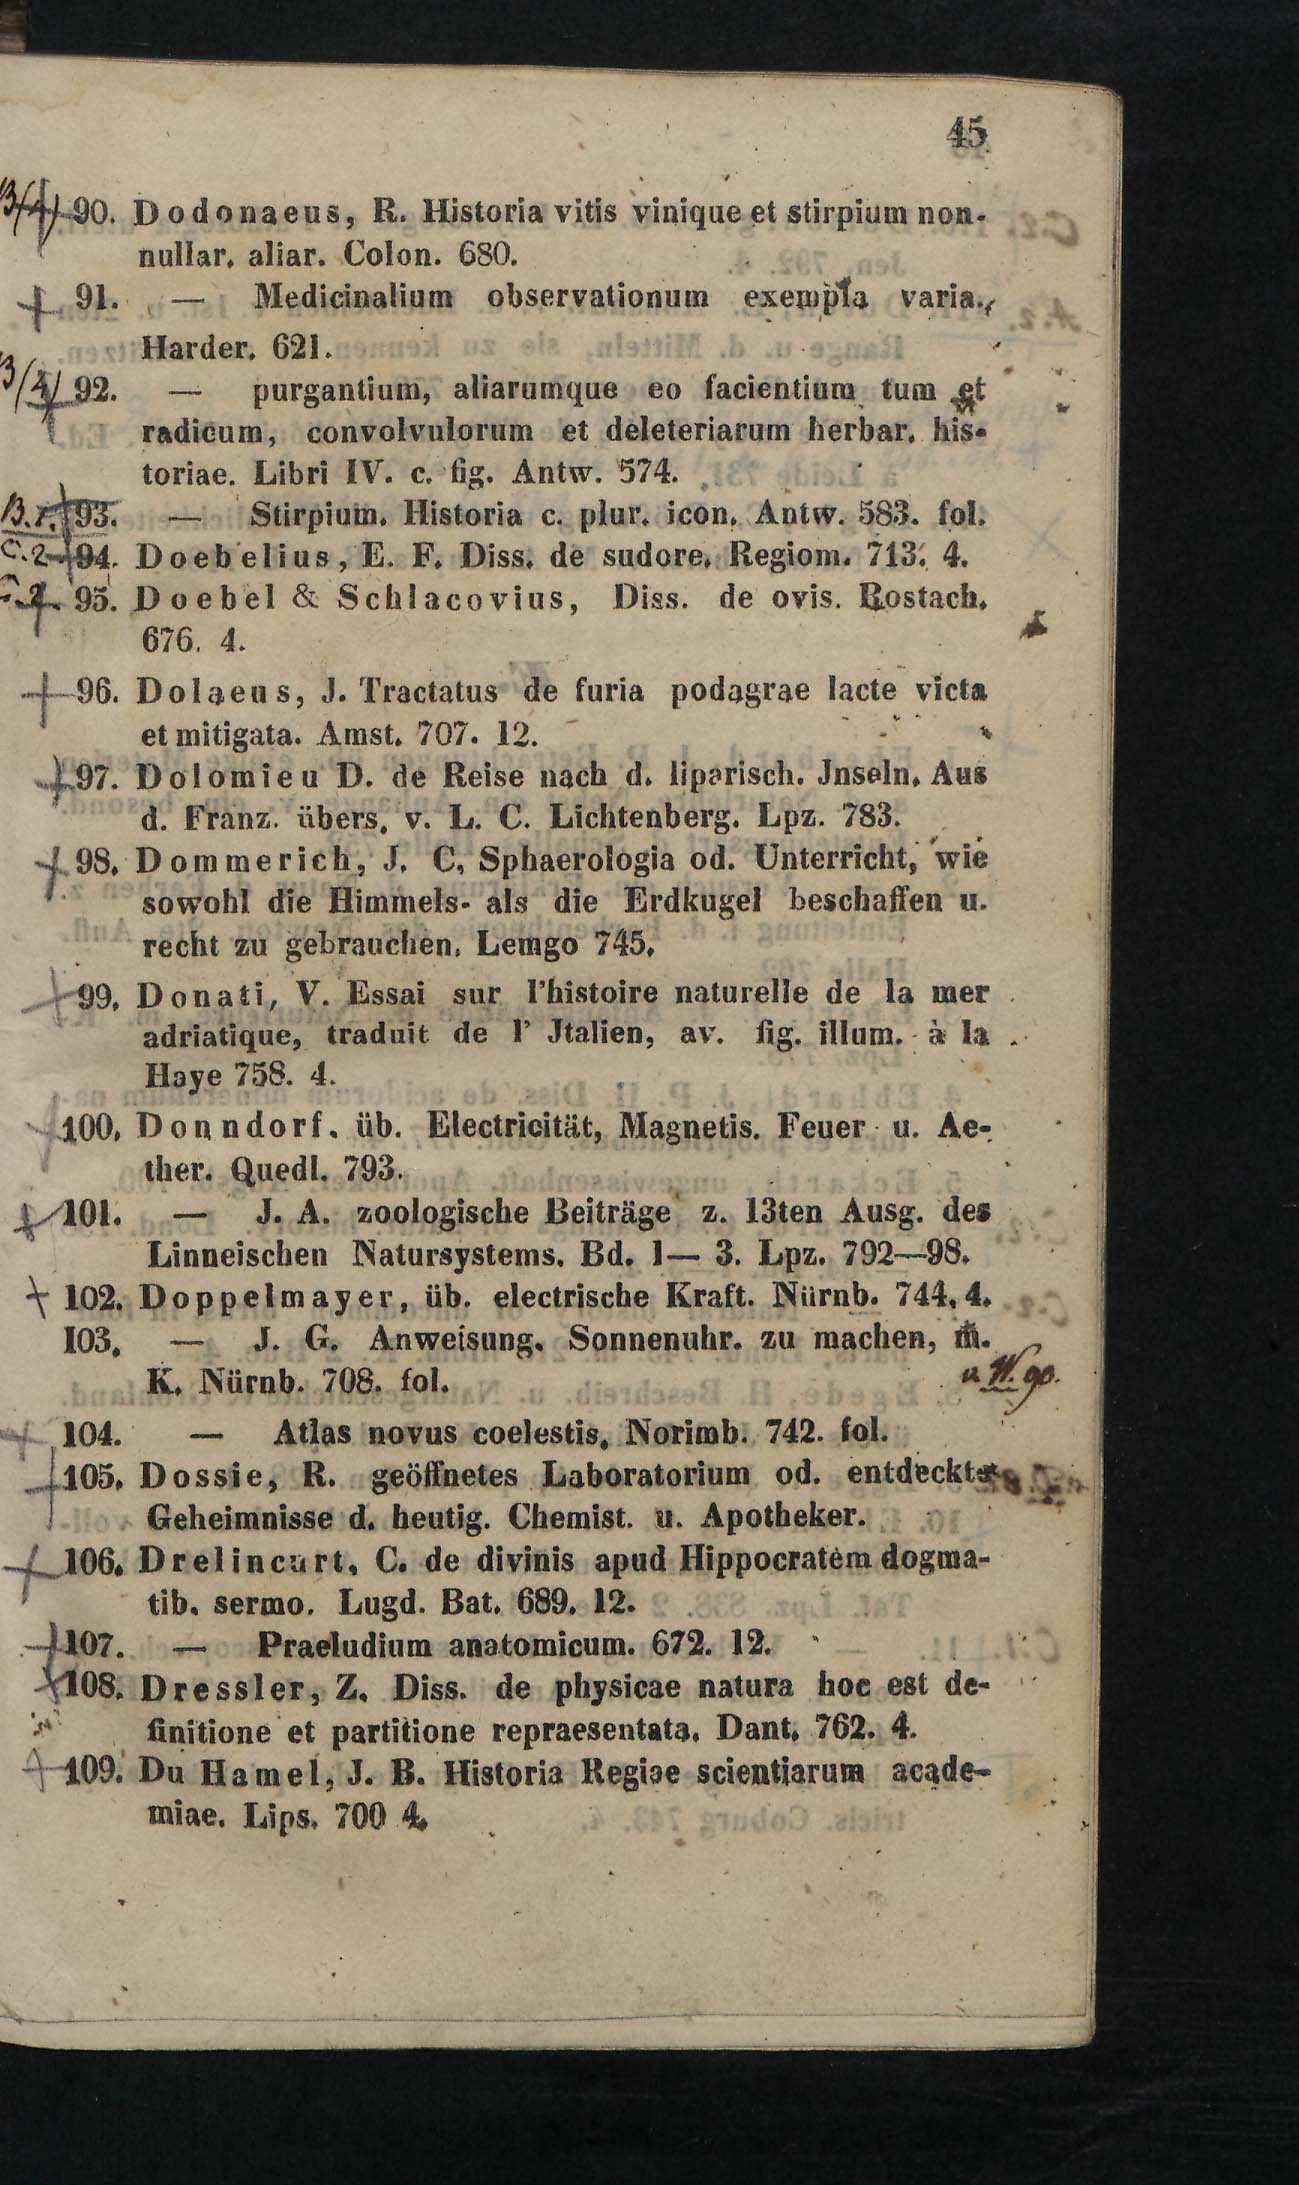 45
90. Dodonaeus, R. Historia vitis vinique et stirpium non-
nullar. aliar. Colon. 680.
91. — Medicinalium observationum exempla varia.
Harder. 621.
92. — purgantium, aliarumque eo facientium tum et
radicum, convolvulorum et deleteriarum herbar. his-
toriae. Libri IV. c. fig. Antw. 574.
93. — Stirpium. Historia c. plur. icon. Antw. 583. fol.
C.2 94. Doebelius, E. F. Diss. de sudore. Regiom. 713. 4.
95. Doebel & Schlacovius, Diss. de ovis. Rostach.
676. 4.
96. Dolaeus, J. Tractatus de furia podagrae lacte victa
et mitigata. Amst. 707. 12.
97. Dolomieu D. de Reise nach d. liparisch. Jnseln. Aus
d. Franz. übers. v. L. C. Lichtenberg. Lpz. 783.
98. Dommerich, J. C. Sphaerologia od. Unterricht, wie
sowohl die Himmels- als die Erdkugel beschaffen u.
recht zu gebrauchen. Lemgo 745.
99. Donati, V. Essai sur l'histoire naturelle de la mer
adriatique, traduit de l' Jtalien, av. fig. illum. à la
Haye 758. 4.
100. Donndorf. üb. Electricität, Magnetis. Feuer u. Ae-
ther. Quedl. 793.
101. — J. A. zoologische Beiträge z. 13ten Ausg. des
Linneischen Natursystems. Bd. 1— 3. Lpz. 792—98.
102. Doppelmayer, üb. electrische Kraft. Nürnb. 744. 4.
103. — J. G. Anweisung. Sonnenuhr. zu machen, m.
K. Nürnb. 708. fol.
104. — Atlas novus coelestis. Norimb. 742. fol.
105. Dossie, R. geöffnetes Laboratorium od. entdeckte
Geheimnisse d. heutig. Chemist. u. Apotheker.
106. Drelincurt. C. de divinis apud Hippocratem dogma-
tib. sermo. Lugd. Bat. 689. 12.
107. — Praeludium anatomicum. 672. 12.
108. Dressler, Z. Diss. de physicae natura hoc est de-
finitione et partitione repraesentata. Dant. 762. 4.
109. Du Hamel, J. B. Historia Regiae scientiarum acade-
miae. Lips. 700 4.